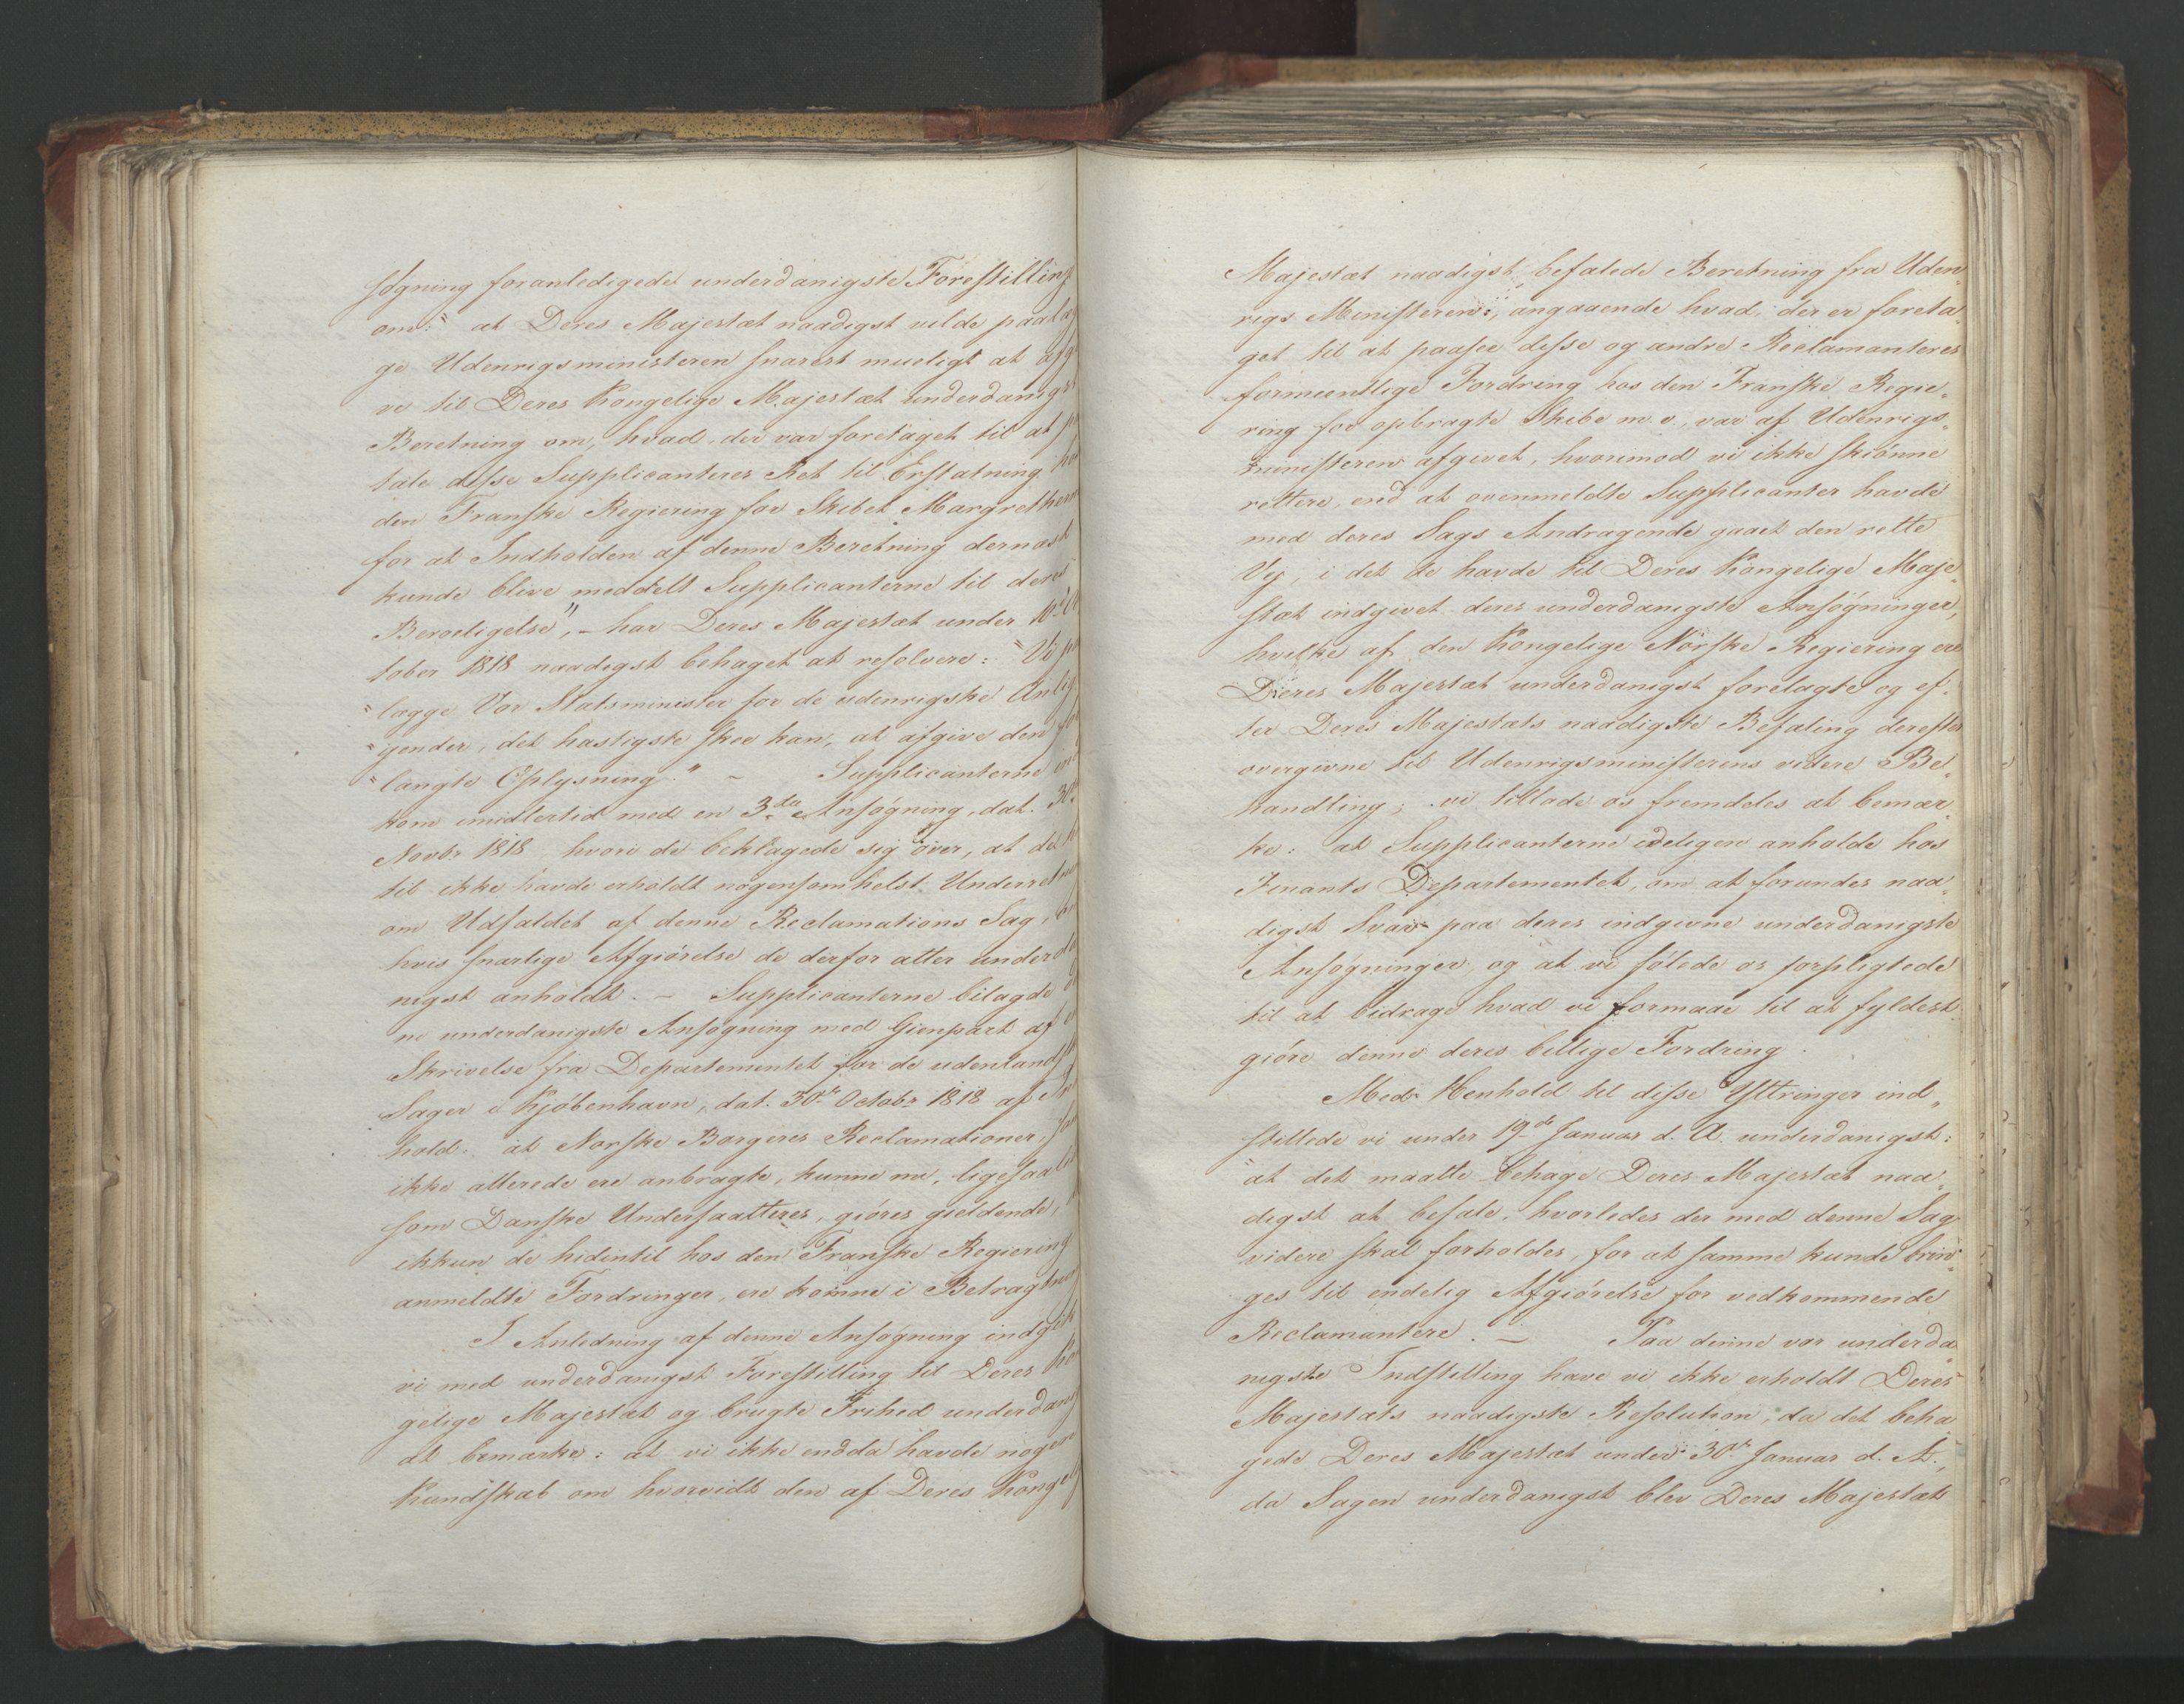 søgning foranledigede underdanigste Forestilling
om: "at Deres Majestæt naadigst vilde paalæg
ge Udenrigsministeren snarest mueligt at afgi
ve til Deres Kongelige Majestæt underdanigst
Beretning om, hvad der var foretaget til at paa
tale disse Supplicanteres Ret til Erstatning hos
den Franske Regiering for Skibet Margrethe
for at Indholden af denne Beretning dernæst
kunde blive meddelt Supplicanterne til deres
Beroeligelse", – har Deres Majestæt under 10de Oc
tober 1818 naadigst behaget at resolvere: "Vi paa
"lægge Vor Statsminister for de udenrigske Anlig
"gender, det hastigste skee kan, at afgive den for
"langte Oplysning." – Supplicanterne ind
kom imidlertid med en 3die Ansøgning, dat. 30te
Novbr 1818 hvori de beklagede sig over, at de
til ikke havde erholdt nogensomhelst Underretn
om Udfaldet af denne Reclamations Sag,
hvis snarlige Afgiørelse de derfor atter underda
nigst anholdt. – Supplicanterne bilagde
ne underdanigste Ansøgning med Gienpart af
Skrivelse fra Departementet for de udenlandske
Sager i Kjøbenhavn, dat. 30te Octobr 1818 af
hold: at Norske Borgeres Reclamationer,
ikke allerede ere anbragte, kunne nu, ligesaalidt
som Danske Undersaatteres, giøres gieldende,
ikkun de hidentil hos den Franske Regiering
anmeldte Fordringer, ere komne i Betragtning
I Anledning af denne Ansøgning indgik
vi med underdanigst Forestilling til Deres Kon
gelige Majestæt og brugte Frihed underdanigst
at bemærke: at vi ikke endda havde nogen
Kundskab om hvorvidt den af Deres Kongel
Majestæt naadigst befalede Beretning fra Uden„
rigs Ministeren, angaaende hvad der er foreta„
get til at paasee disse og andre Reclamanteres
formeentlige Fordring hos den Franske Regie„
ring for opbragte Skibe m. v., var af Udenrigs„
ministeren afgivet, hvorimod vi ikke skiønne
rettere, end at ovenmeldte Supplicanter havde
med deres Sags Andragende gaaet den rette
Vej, i det de havde til Deres Kongelige Maje„
stæt indgivet deres underdanigste Ansøgninger,
hvilke af den Kongelige Norske Regiering ere
Deres Majestæt underdanigst forelagte og ef„
ter Deres Majestæts naadigste Befaling derefter
overgivne til Udenrigsministerens videre Be„
handling; vi tillade os fremdeles at bemær„
ke: at Supplicanterne ideligen anholde hos
Finants Departementet, om at forundes naa„
digst Svar paa deres indgivne underdanigste
Ansøgninger, og at vi følede os forpligtede
til at bidrage hvad vi formaae til at fyldest„
giøre denne deres billige Fordring.
Med Henhold til disse Yttringer ind„
stillede vi under 19de Januar d. A. underdanigst:
"at det maatte behage Deres Majestæt naa„
digst at befale, hvorledes der med denne Sag
videre skal forholdes, for at samme kunde brin„
ges til endelig Afgiørelse for vedkommende
Reclamantere. – Paa denne vor underda„
nigste Indstilling have vi ikke erholdt Deres
Majestæts naadigste Resolution, da det beha„
gede Deres Majestæt under 30te Januar d. A.,
da Sagen underdanigst blev Deres Majestæt